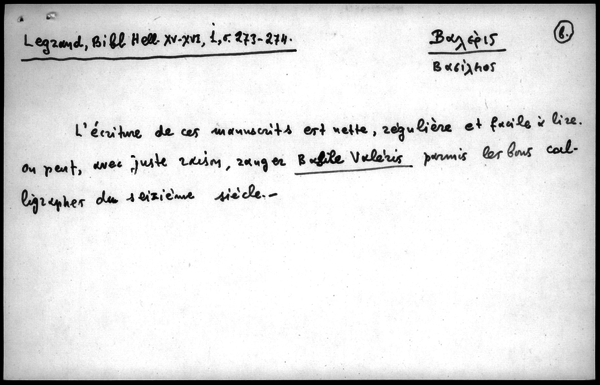 Legrand, Bibl Hell XV-XVI, 1, σ. 273-274.
Βαλέρις
Βασίλειος
6.
L'écriture de ces manuscrits est nette, régulière et facile à lire.
on peut, avec juste raison, ranger Basile Valéris parmis les bons cal-
ligraphes du seizième siècle.-